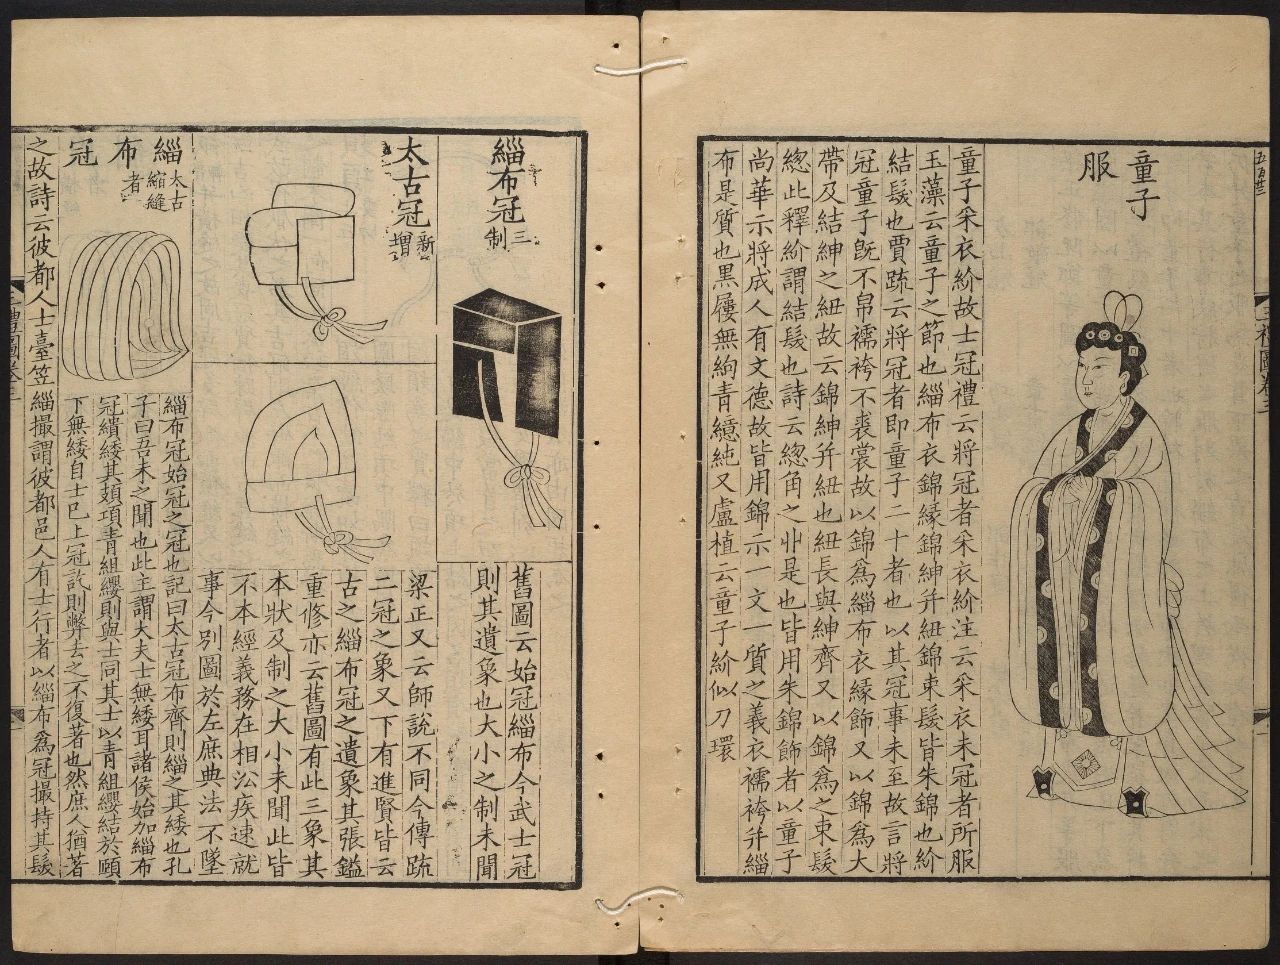 童子
服
童子采衣紒故士冠禮云將冠者采衣紒注云采衣未冠者所服
玉藻云童子之節也緇布衣錦緣錦紳并紐錦束髮皆朱錦也紒
結髮也賈疏云將冠者即童子二十者也以其冠事未至故言將
冠童子旣不帛襦袴不裘裳故以錦爲緇布衣緣飾又以錦爲大
帶及結紳之紐故云錦紳并紐也紐長與紳齊又以錦爲之束髮
緫此釋紒謂結髮也詩云緫角之丱是也皆用朱錦飾者以童子
尚華示將成人有文德故皆用錦示一文一質之義衣襦袴并緇
布是質也黑屨無絇青繶純又盧植云童子紒似刀環
三禮圖卷三
緇布冠三制
舊圖云始冠緇布今武士冠
則其遺象也大小之制未聞
太古冠新增
梁正又云師說不同今傳疏
二冠之象又下有進賢皆云
古之緇布冠之遺象其張鎰
重修亦云舊圖有此三象其
本狀及制之大小未聞此皆
不本經義務在相沿疾速就
事今別圖於左庶典法不墜
緇布冠太古縮縫者
緇布冠始冠之冠也記曰太古冠布齊則緇之其緌也孔
子曰吾未之聞也此主謂大夫士無緌耳諸侯始加緇布
冠繢緌其頍項青組纓則與士同其士以青組纓結於頤
下無緌自士已上冠訖則弊去之不復著也然庶人猶著
之故詩云彼都人士臺笠緇撮謂彼都邑人有士行者以緇布爲冠撮持其髮
三禮圖卷三